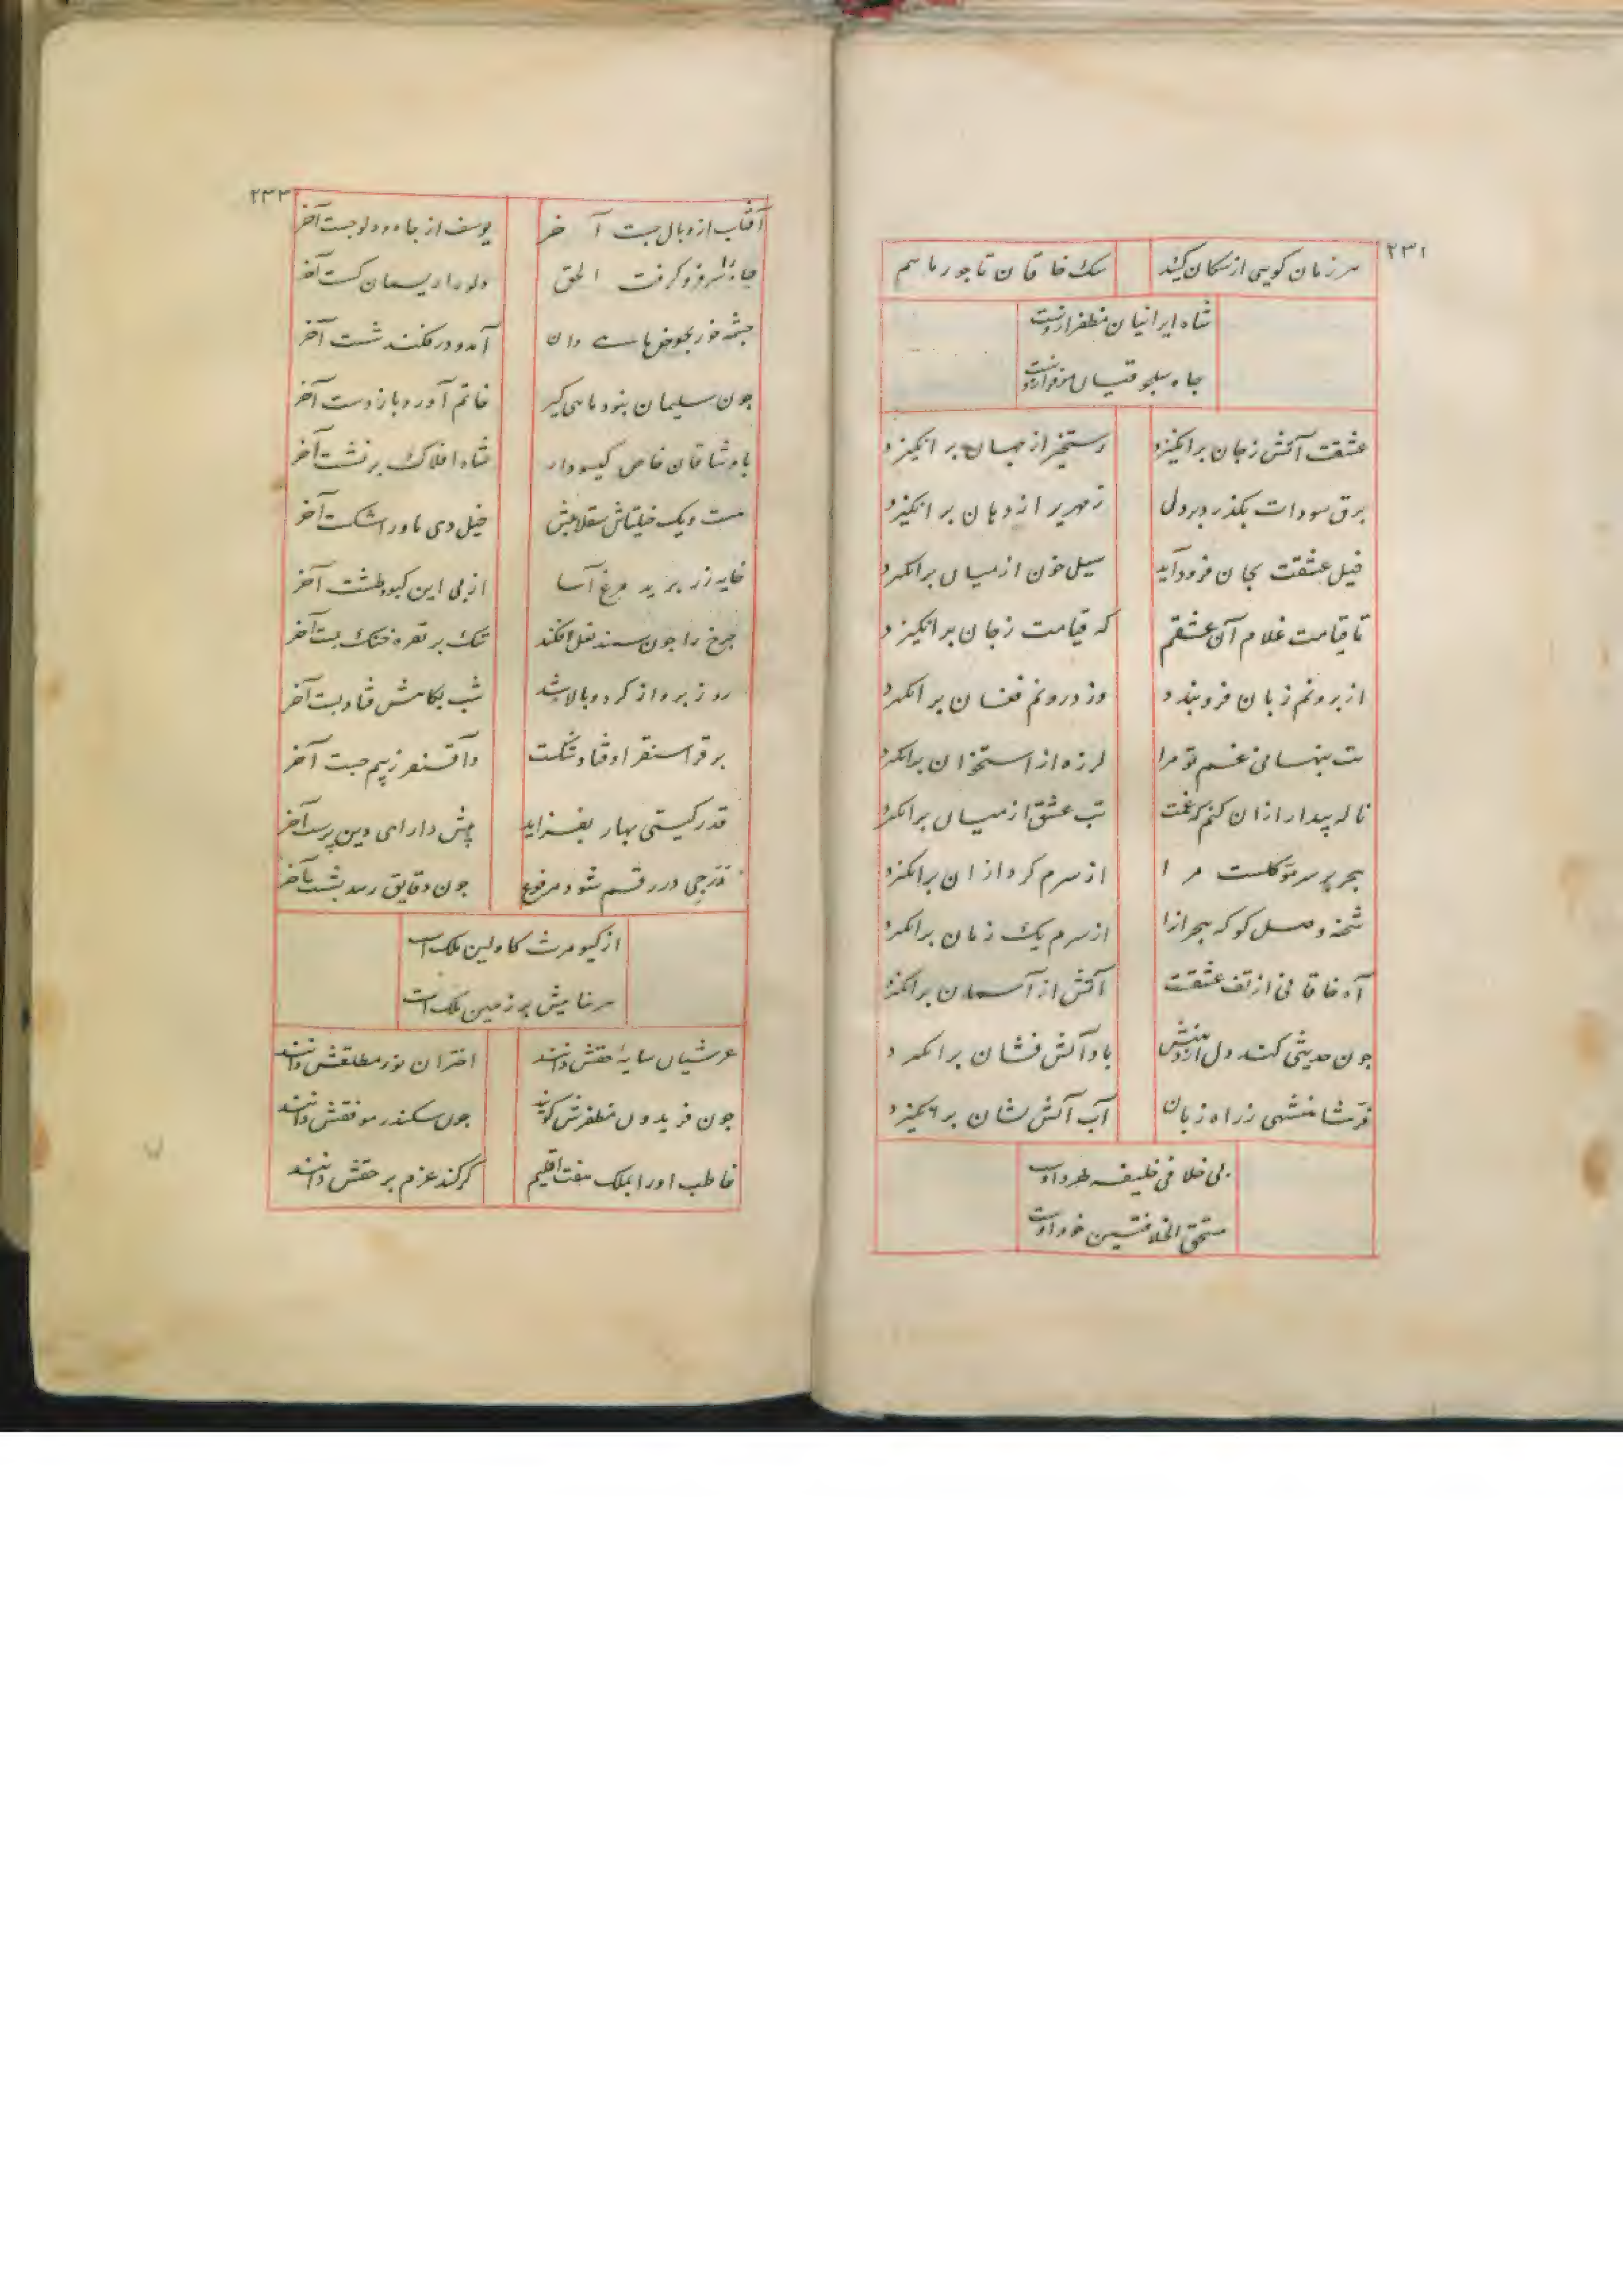 ۲۳۱
هر زمان کویی از سکان کیند سک خاقان تاجور ماسم
شاه ایرانیان مظفر ازوست
جاه سلجوقیان موفر ازوست
عشقت آتش زجان برانکیزد رستخیز از جهان برانکیزد
برق سودات بکذرد بر دلی زمهریر از دهان برانکیزد
خیل عشقت بجان فرود آید سیل خون از میان برانکیزد
تا قیامت غلام آن عشقم که قیامت زجان برانکیزد
از برونم زبان فرو بندد وز درونم فغان برانکیزد
تب پنهانی غم تو مرا لرزه از استخوان برانکیزد
ناله پیدا ازان کنم که غمت تب عشق از میان برانکیزد
هجر بر سر موکلست مرا از سرم کرد ازان برانکیزد
شحنه وصل کو که هجر ازا از سرم یک زمان برانکیزد
آه خاقانی از تف عشقت آتش از آسمان برانکیزد
چون حدیثی کند دل از دهنش باد آتش فشان برانکیزد
ترشا منشهی زراه زبان آب آتش نشان برانکیزد
بی خلافی خلیفه طرد اوست
مستحق الخلافتین خود اوست
۲۳۳
آفتاب از وبال جست آخر یوسف از چاه و دلو جست آخر
فرو کرفت الحق دلو را ریسمان کست آخر
چشمه خور بحوض ماهی دان آمد و در فکند شست آخر
چون سلیمان نبود ماهی کیر خاتم آورد باز دست آخر
با وشاقان خاص کیسودار شاه افلاک برنشست آخر
بیست و یک خیلتاش سقلابیش خیل دی ماه را شکست آخر
خایه زر پرید مرغ آسا از پی این کبود طشت آخر
چرخ را چون سمند نعل افکند تنک بر نقره خنک بست آخر
روز پرواز کرد و بالا شد شب بکاهش فتاد پست آخر
بر قراسنقر اوفتاد شکست و آقسنقر زبیم جست آخر
قدر کیتی بهار بفزاید پیش دارای دین پرست آخر
درجی در رقم شود مرفوع چون دقایق رسد بشست آخر
از کیومرث کاولین ملک است
سر خایش بر زمین ملک است
عرشیان سایهٔ حقش دانند اختران نور مطلقش دانند
چون فریدون مظفرش کویند چون سکندر موفقش دانند
خاطب او را بملک هفت اقلیم کر کند عزم بر حقش دانند